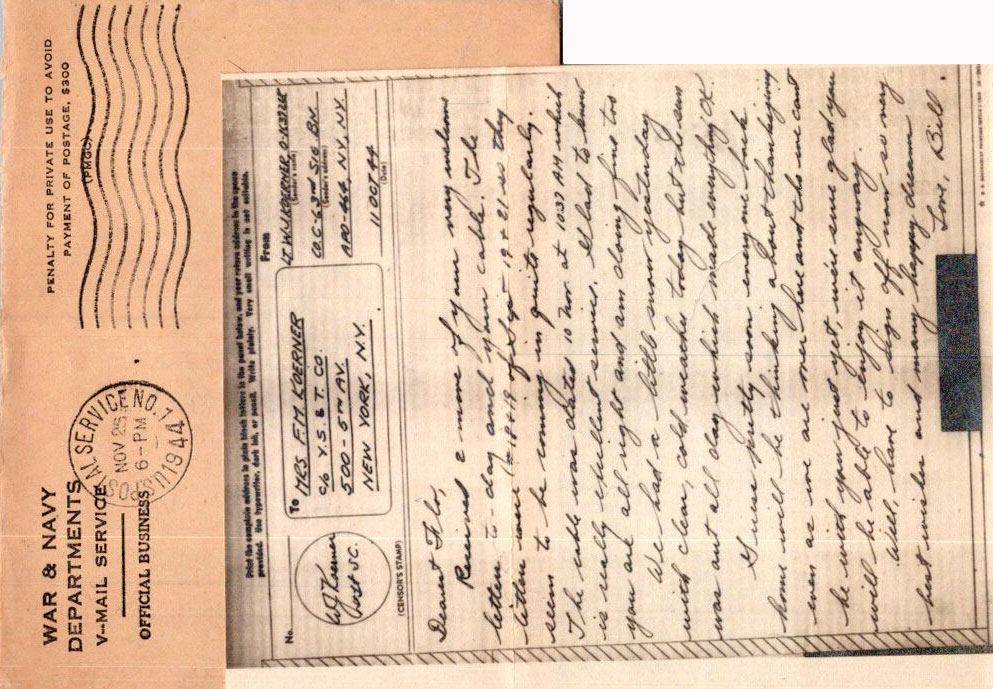 WAR & NAVY
DEPARTMENTS
V-MAIL SERVICE
OFFICIAL BUSINESS
U.S. POSTAL SERVICE NO. 1
NOV 25
6-PM
1944
PENALTY FOR PRIVATE USE TO AVOID
PAYMENT OF POSTAGE, $300
(PMGC)
Print the complete address in plain block letters in the panel below, and your return address in the space
provided. Use typewriter, dark ink, or pencil. Write plainly. Very small writing is not suitable.
No.
(CENSOR'S STAMP)
To
MRS. F.M. KOERNER
c/o Y.S. & T. CO.
500-5TH AV.
NEW YORK, N.Y.
From
LT W.J. KOERNER
(Sender's name)
CO. C-63RD SIG. BN.
(Sender's address)
APO-464, NY, NY.
11 OCT 44
(Date)
Dearest Flo,
Received 2 more of your very welcome
letters to-day and your cable. The
letters were of Sept 19 + 21 so they
seem to be coming in quite regularly.
The cable was dated 10 Nov. at 1037 AM which
is really excellent service. Glad to know
you are all right and am doing fine too.
We had a little snow yesterday
with clear, cold weather today but the sun
was out all day which made everything OK.
I guess pretty soon everyone back
home will be thinking about thanksgiving
even as we are over here and tho we cant
be with you just yet, we're sure glad you
will be able to enjoy it anyway.
Well, have to sign off now so very
best wishes and many happy dreams
Love, Bill.